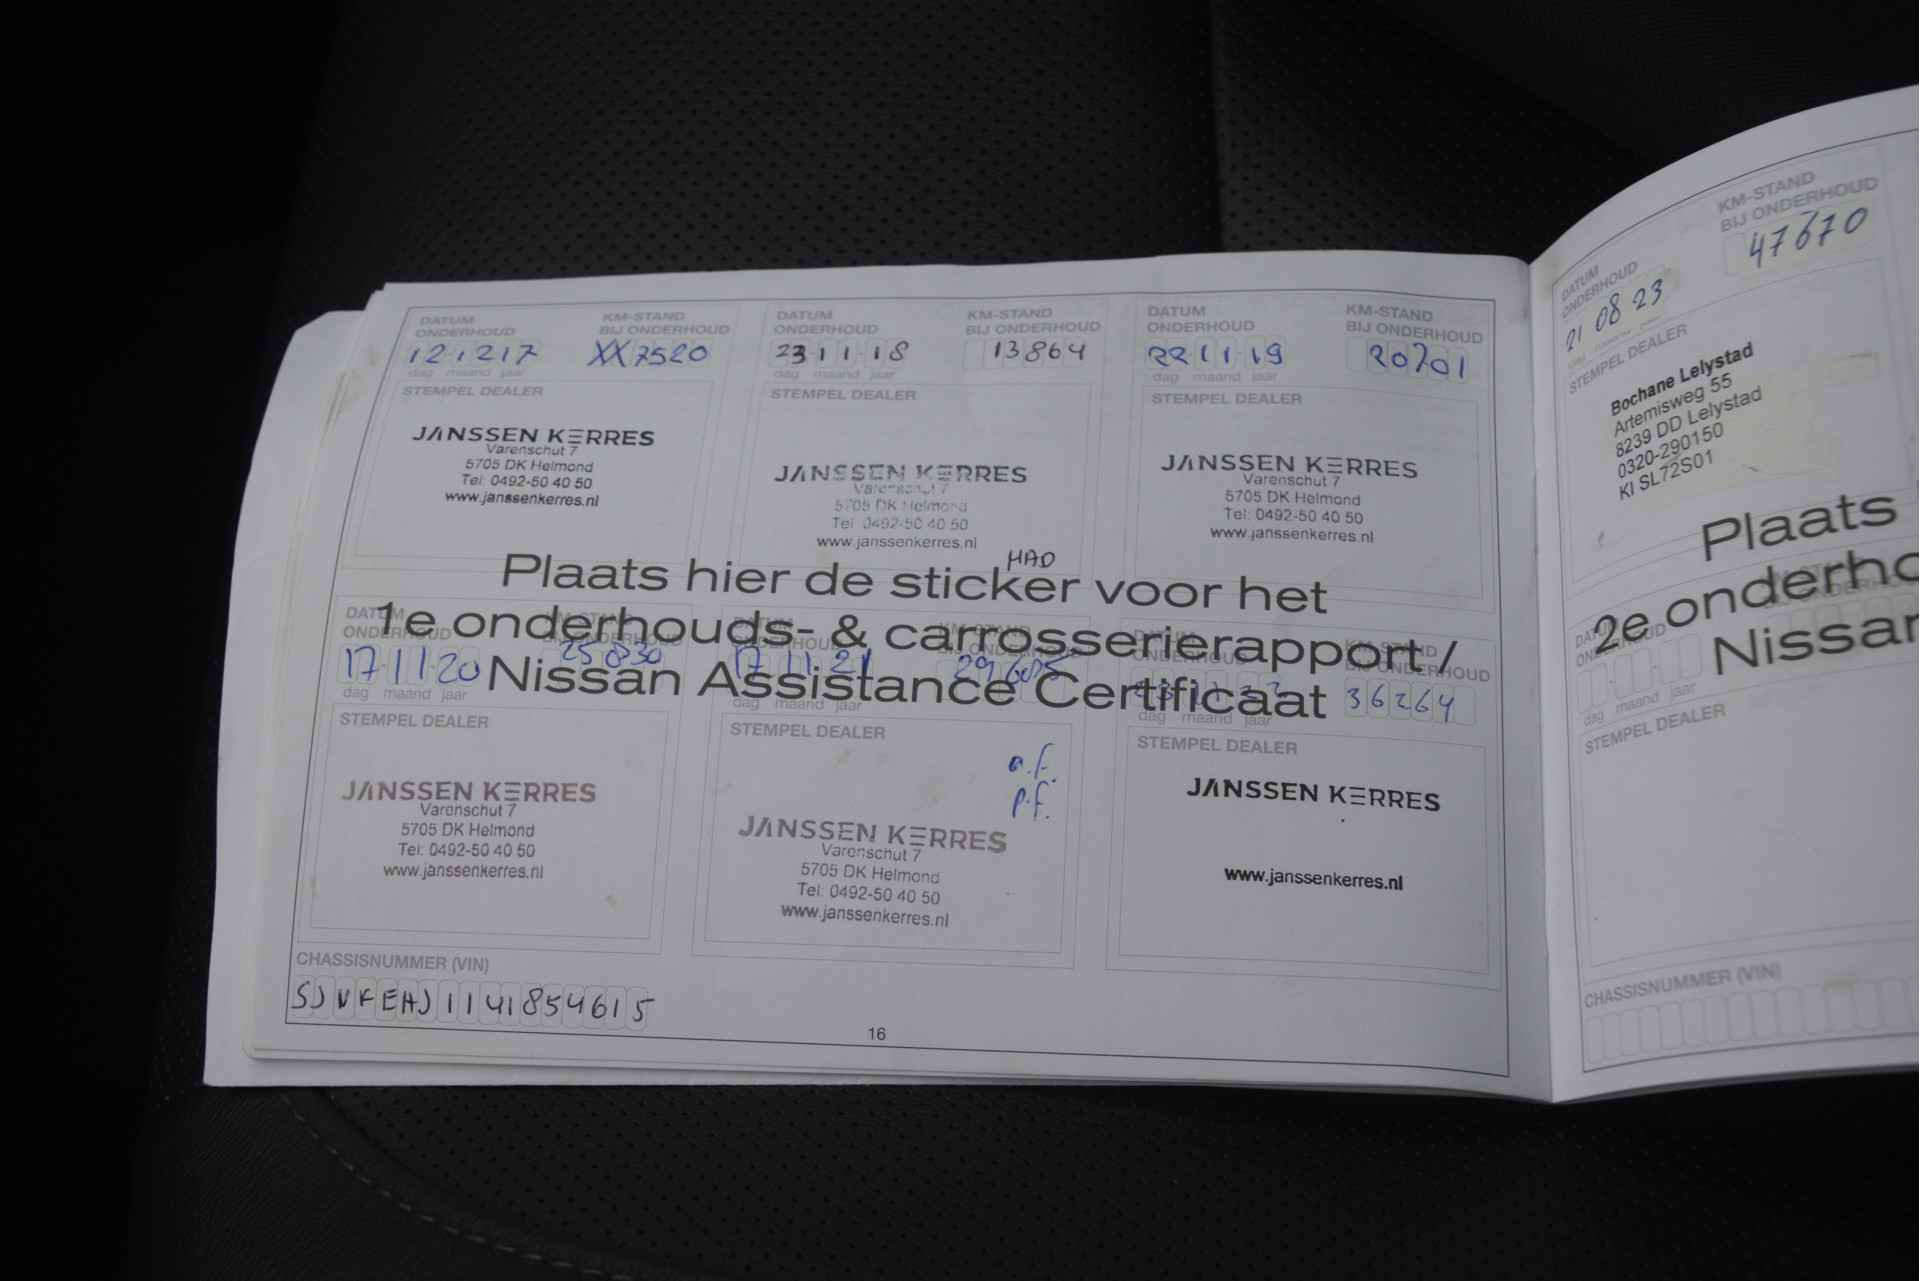 DATUM
ONDERHOUD
121217
dag maand jaar
KM-STAND
BIJ ONDERHOUD
XX7520
STEMPEL DEALER
JANSSEN KERRES
Varenschut 7
5705 DK Helmond
Tel: 0492-50 40 50
www.janssenkerres.nl
DATUM
ONDERHOUD
23 11 18
dag maand jaar
KM-STAND
BIJ ONDERHOUD
13864
STEMPEL DEALER
JANSSEN KERRES
Varenschut 7
5705 DK Helmond
Tel: 0492-50 40 50
www.janssenkerres.nl
DATUM
ONDERHOUD
22 11 19
dag maand jaar
KM-STAND
BIJ ONDERHOUD
20701
STEMPEL DEALER
JANSSEN KERRES
Varenschut 7
5705 DK Helmond
Tel: 0492-50 40 50
www.janssenkerres.nl
Plaats hier de sticker voor het
1e onderhouds- & carrosserierapport /
Nissan Assistance Certificaat
DATUM
ONDERHOUD
17 11 20
dag maand jaar
KM-STAND
BIJ ONDERHOUD
25830
STEMPEL DEALER
JANSSEN KERRES
Varenschut 7
5705 DK Helmond
Tel: 0492-50 40 50
www.janssenkerres.nl
DATUM
ONDERHOUD
17 11 21
dag maand jaar
KM-STAND
BIJ ONDERHOUD
STEMPEL DEALER
a.f.
p.f.
JANSSEN KERRES
Varenschut 7
5705 DK Helmond
Tel: 0492-50 40 50
www.janssenkerres.nl
DATUM
ONDERHOUD
dag maand jaar
KM-STAND
BIJ ONDERHOUD
36264
STEMPEL DEALER
JANSSEN KERRES
www.janssenkerres.nl
CHASSISNUMMER (VIN)
SJNFEAJ11U1854615
16
DATUM
ONDERHOUD
21 08 23
KM-STAND
BIJ ONDERHOUD
47670
STEMPEL DEALER
Bochane Lelystad
Artemisweg 55
8239 DD Lelystad
0320-290150
KI SL72S01
Plaats
2e onderho
Nissan
DATUM
ONDERHOUD
dag maand jaar
STEMPEL DEALER
CHASSISNUMMER (VIN)